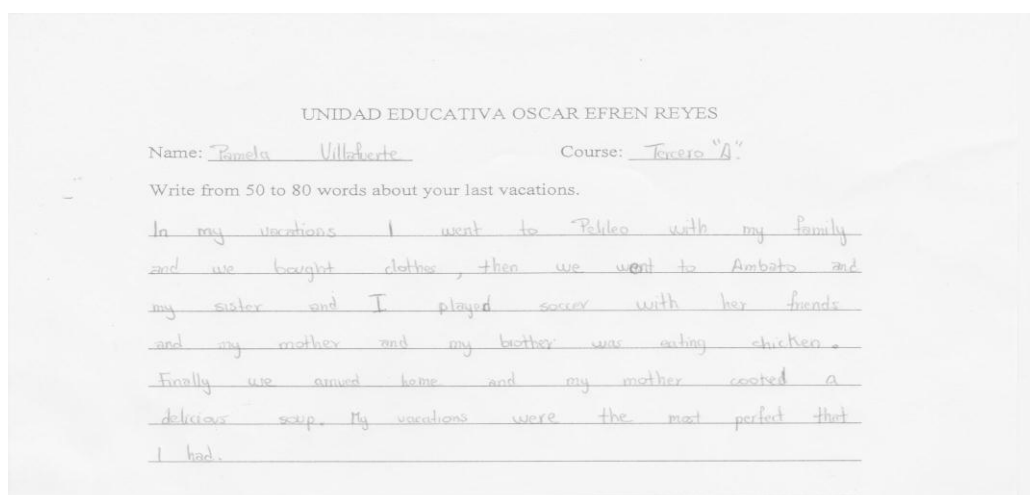 UNIDAD EDUCATIVA OSCAR EFREN REYES
Name: Pamela Villafuerte Course: Tercero "A".
Write from 50 to 80 words about your last vacations.
In my vacations I went to Pelileo with my family
and we bought clothes, then we went to Ambato and
my sister and I played soccer with her friends
and my mother and my brother was eating chicken.
Finally we arrived home and my mother cooked a
delicious soup. My vacations were the most perfect that
I had.